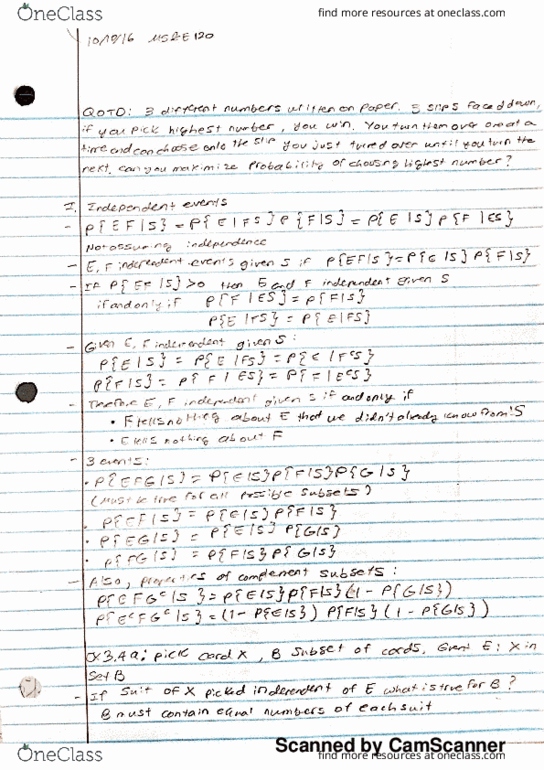 OneClass
find more resources at oneclass.com
10/19/16 MS&E 120
QOTD: 3 different numbers written on paper. 3 slips faced down,
if you pick highest number, you win. You turn them over one at a
time and can choose onto the slip you just turned over until you turn the
next. can you maximize probability of chosing highest number?
I. Independent events
- P{EF|S} = P{E|FS} P{F|S} = P{E|S} P{F|ES}
Not assuming independence
- E, F independent events given S if P{EF|S} = P{E|S} P{F|S}
- If P{EF|S} >0 then E and F independent given S
if and only if P{F|ES} = P{F|S}
P{E|FS} = P{E|FS}
- Given E, F independent given S:
P{E|S} = P{E|FS} = P{E|FᶜS}
P{F|S} = P{F|ES} = P{F|EᶜS}
- Therefore E, F independent given S if and only if
• F tells nothing about E that we didn't already know from S
• E tells nothing about F
- 3 events:
• P{EFG|S} = P{E|S} P{F|S} P{G|S}
(Must be true for all possible subsets)
• P{EF|S} = P{E|S} P{F|S}
• P{EG|S} = P{E|S} P{G|S}
• P{FG|S} = P{F|S} P{G|S}
- Also, properties of complement subsets:
P{EFGᶜ|S} = P{E|S} P{F|S} (1 - P{G|S})
P{EᶜFGᶜ|S} = (1 - P{E|S}) P{F|S} (1 - P{G|S})
EX 3.4a: pick card X, B subset of cards, Event E: X in
set B
- If suit of X picked independent of E what is true for B?
B must contain equal numbers of each suit
Scanned by CamScanner
OneClass
find more resources at oneclass.com